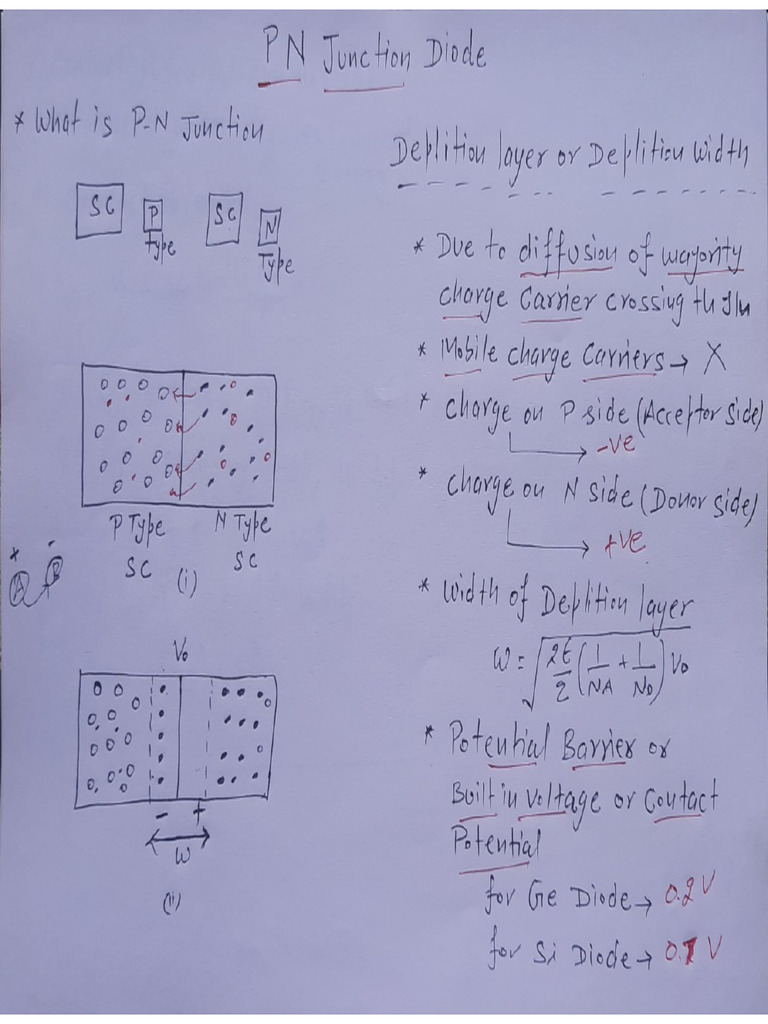 PN Junction Diode
* What is P-N Junction
SC P Type SC N Type
P Type SC
N Type SC
(i)
+ -
A B
V₀
- +
W
(ii)
Deplition layer or Deplition Width
* Due to diffusion of majority
charge Carrier crossing th Jn
* Mobile charge Carriers → X
* charge on P side (Acceptor side)
→ -ve
* charge on N side (Donor side)
→ +ve
* Width of Deplition layer
W = √(2ε/2 (1/NA + 1/ND) V₀)
* Potential Barrier or
Built in voltage or Contact
Potential
for Ge Diode → 0.2 V
for Si Diode → 0.7 V